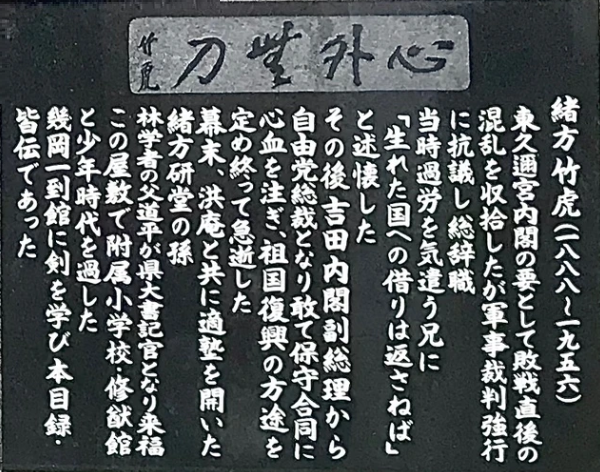 心外無刀
竹虎
緒方竹虎(一八八八~一九五六)
東久邇宮内閣の要として敗戦直後の
混乱を収拾したが軍事裁判強行
に抗議し総辞職
当時過労を気遣う兄に
「生れた国への借りは返さねば」
と述懐した
その後吉田内閣副総理から
自由党総裁となり敢て保守合同に
心血を注ぎ、祖国復興の方途を
定め終って急逝した
幕末、洪庵と共に適塾を開いた
緒方研堂の孫
林学者の父道平が県大書記官となり来福
この屋敷で附属小学校・修猷館
と少年時代を過した
幾岡一到館に剣を学び本目録・
皆伝であった